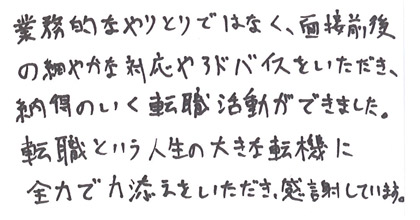 業務的なやりとりではなく、面接前後
の細やかな対応やアドバイスをいただき、
納得のいく転職活動ができました。
転職という人生の大きな転機に
全力で力添えをいただき、感謝しています。